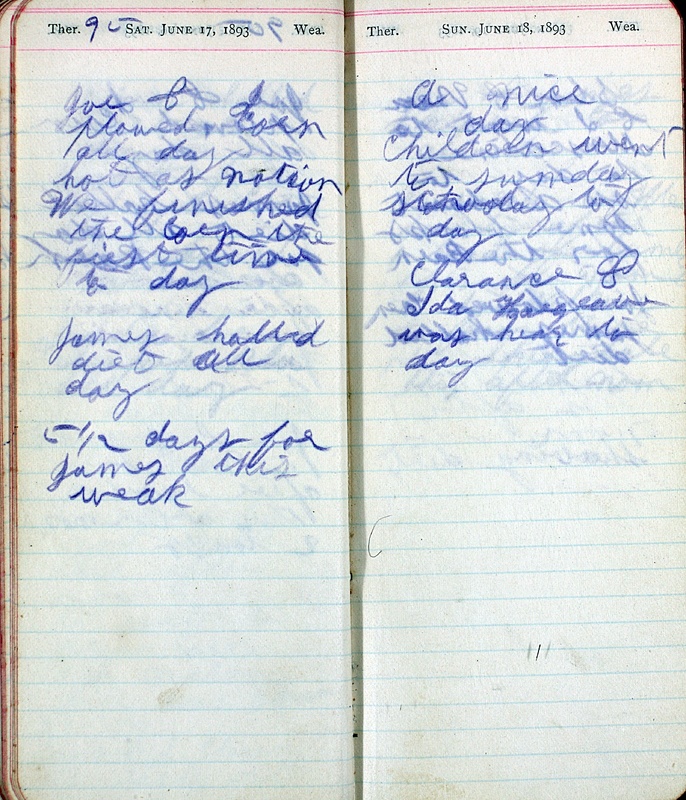 Ther. 95 SAT. JUNE 17, 1893 Wea.
Joe & I
plowed Corn
all day
hot as notion
We finished
the Corn the
first time
to day
James halled
dirt all
day
5 1/2 days for
James this
weak
Ther. SUN. JUNE 18, 1893 Wea.
A nice
day
Children went
to sunday
schoolay to
day
Clarance &
Ida
was hear to
day